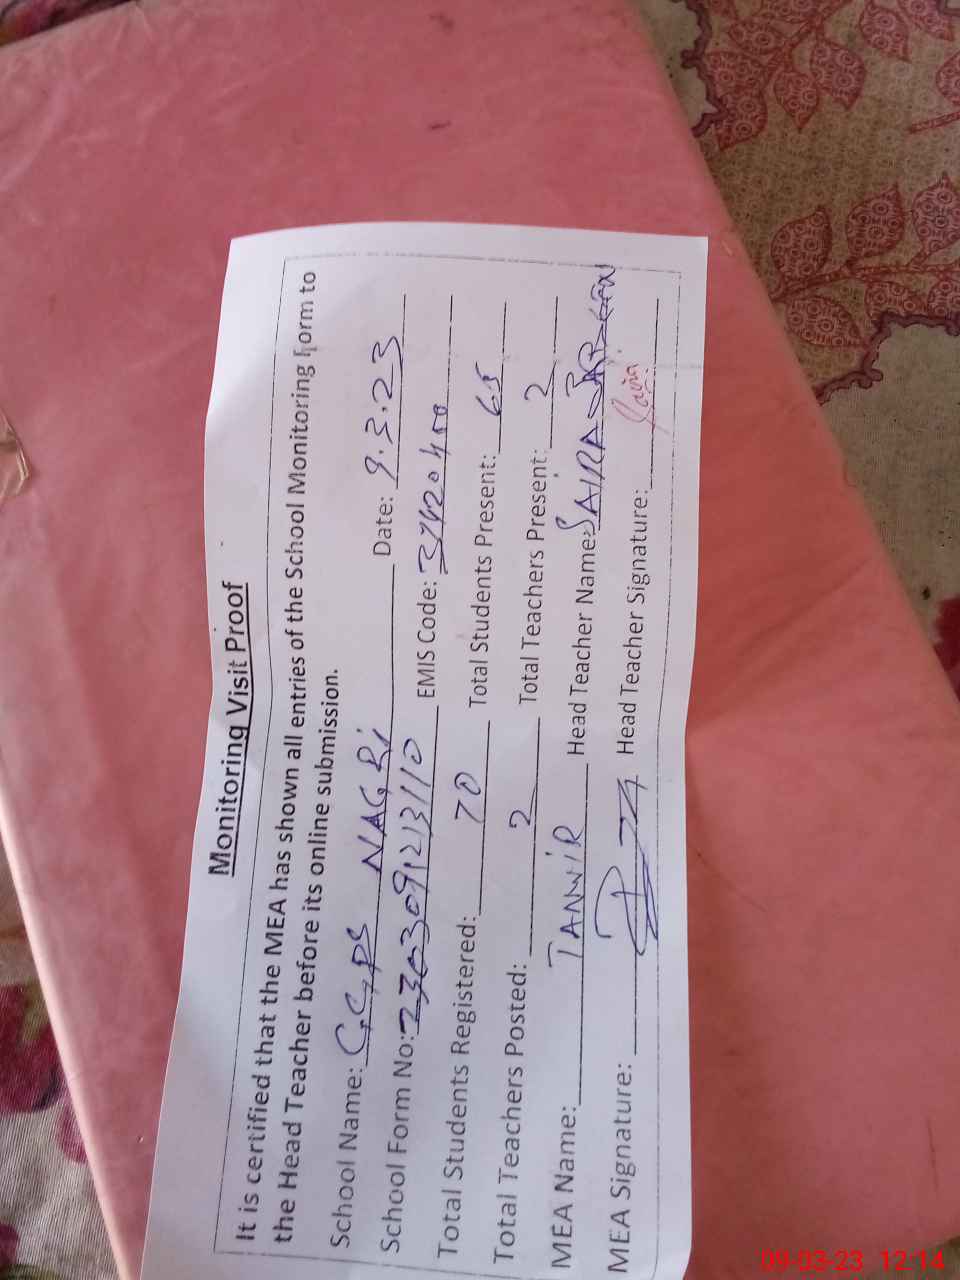 Monitoring Visit Proof
It is certified that the MEA has shown all entries of the School Monitoring Form to
the Head Teacher before its online submission.
School Name: GGPS NAGRi Date: 9.3.23
School Form No: 2303091213110 EMIS Code: 37420400
Total Students Registered: 70 Total Students Present: 65
Total Teachers Posted: 2 Total Teachers Present: 2
MEA Name: TANWiR Head Teacher Name: SAIRA
MEA Signature: Head Teacher Signature: Saira
09-03-23 12:14